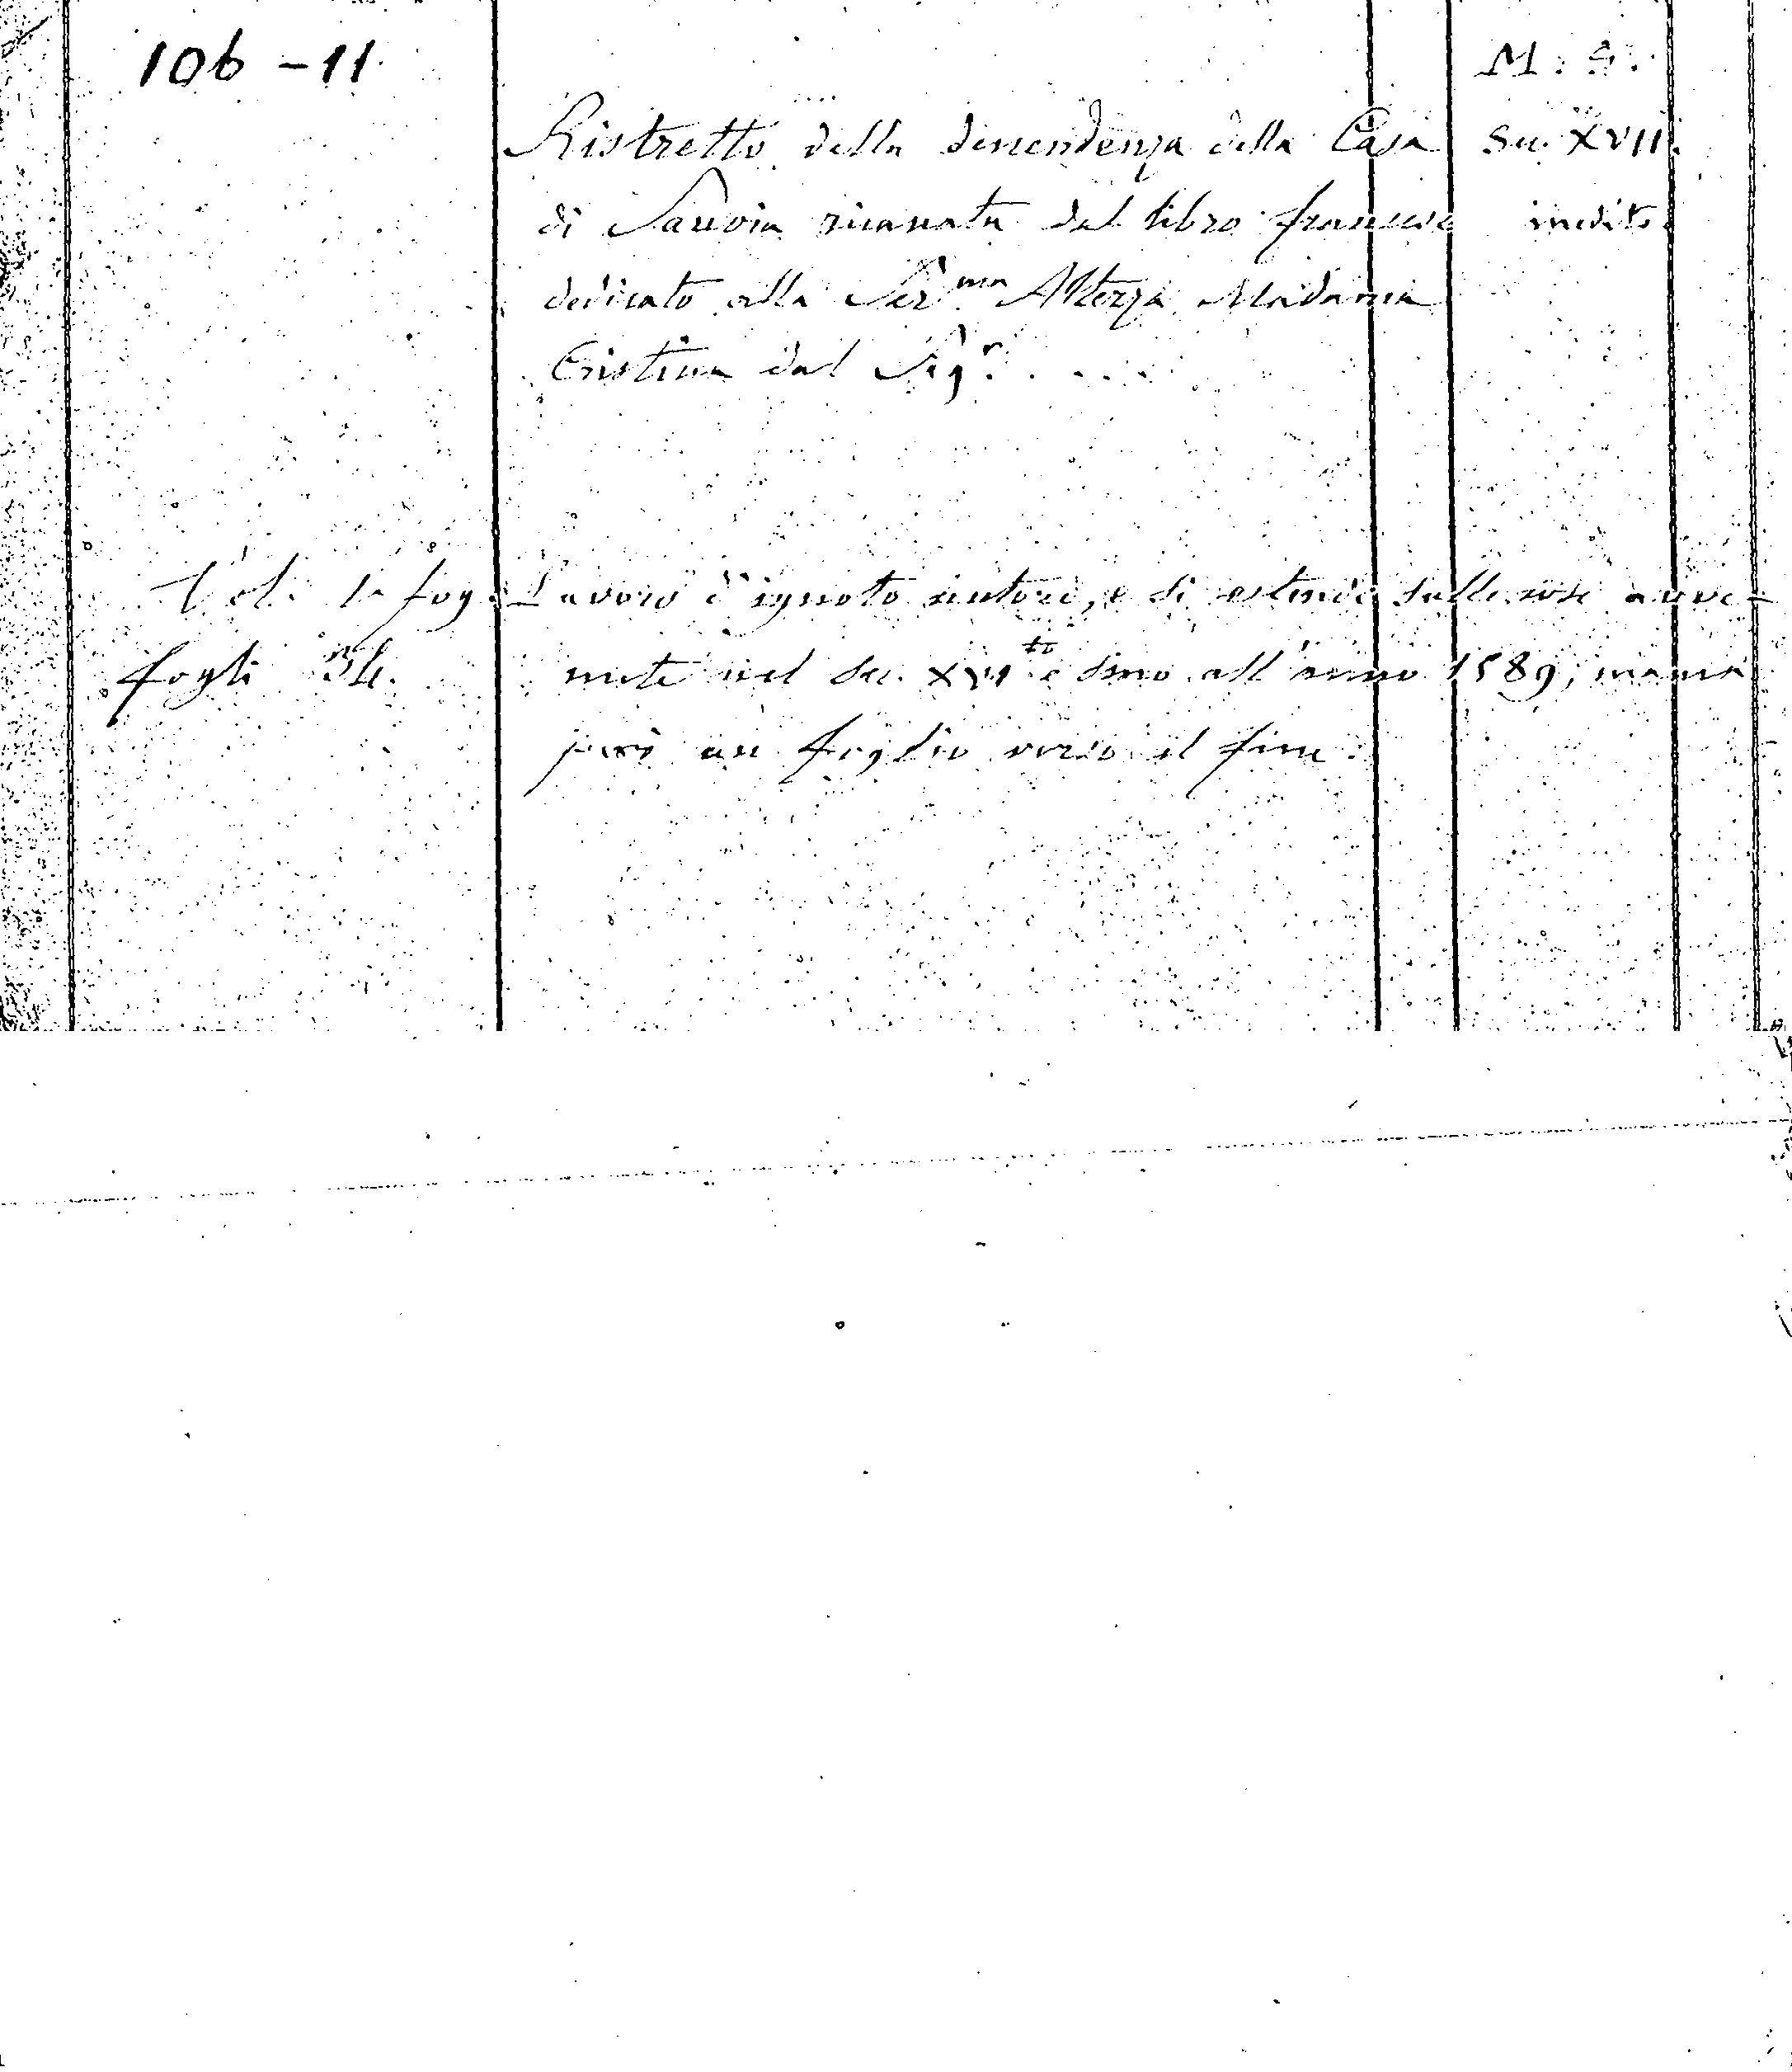 106 - 11
M : S :
Ristretto della discendenza della Casa
Sec. XVII.
di Sauoia ricauata dal libro francese
inedito
dedicato alla Ser.ma Altezza Madama
Cristina dal Sig.r . . . . .
Vol. in fog.
Lavoro d'ignoto autore, e si estende sulle cose avve-
fogli 34.
nute nel Sec. XVI.to e sino all'anno 1589; manca
però un foglio verso il fine.